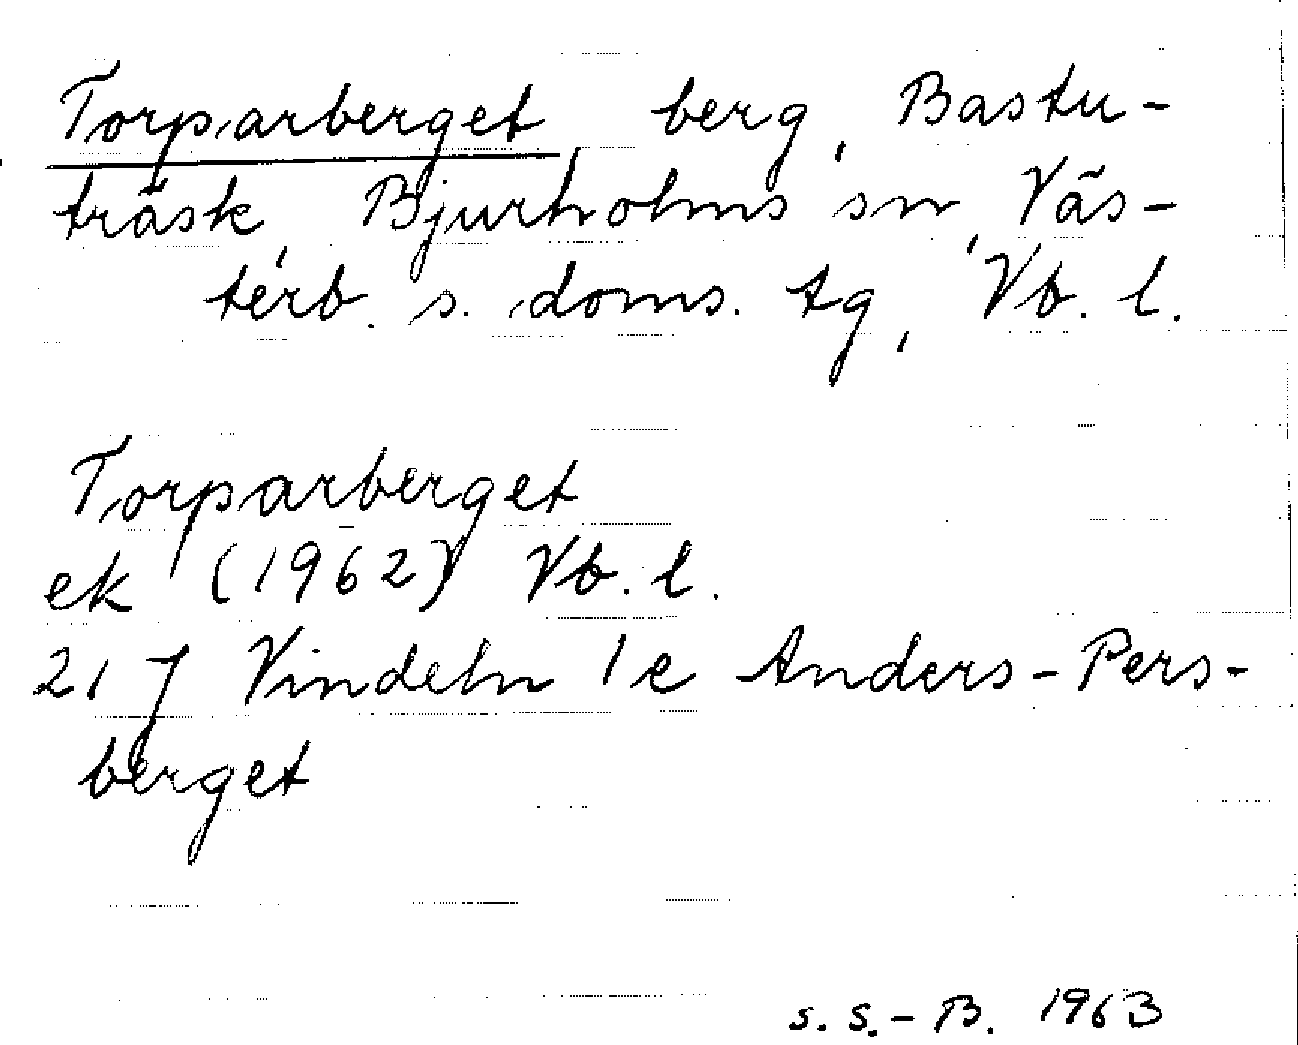 Torparberget berg, Bastu-
träsk, Bjurholms sn, Väs-
terb. s. doms. tg, Vb. l.
Torparberget
ek (1962) Vb. l.
21 J Vindeln 1 e Anders-Pers-
berget
s. s.-B. 1963